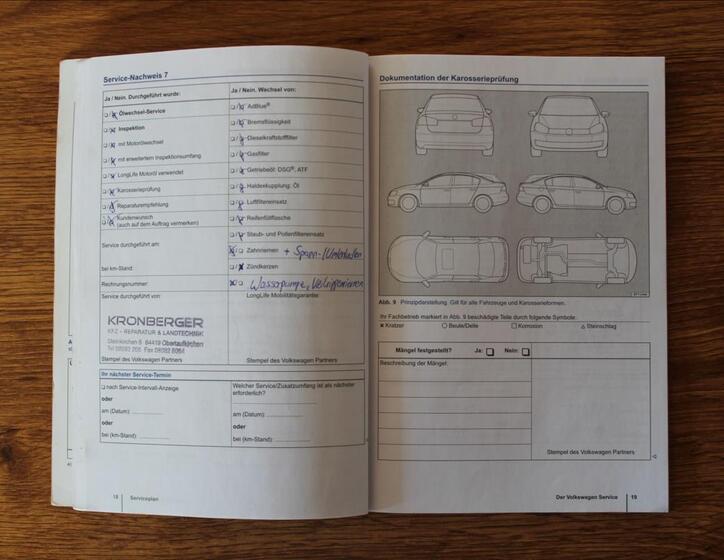 Service-Nachweis 7
Ja / Nein. Durchgeführt wurde:
Ölwechsel-Service
Inspektion
mit Motorölwechsel
mit erweitertem Inspektionsumfang
LongLife Motoröl verwendet
Karosserieprüfung
Reparaturempfehlung
Kundenwunsch
(auch auf dem Auftrag vermerken)
Service durchgeführt am:
bei km-Stand:
Rechnungsnummer:
Service durchgeführt von:
KRONBERGER
KFZ - REPARATUR & LANDTECHNIK
Steinkirchen 6 84419 Obertaufkirchen
Tel 08082 265 Fax 08082 8064
Stempel des Volkswagen Partners
Ja / Nein. Wechsel von:
AdBlue®
Bremsflüssigkeit
Dieselkraftstofffilter
Gasfilter
Getriebeöl: DSG®, ATF
Haldexkupplung: Öl
Luftfiltereinsatz
Reifenfüllflasche
Staub- und Pollenfiltereinsatz
Zahnriemen + Spann-/Umlenkrollen
Zündkerzen
Wasserpumpe, Keilrippenriemen
LongLife Mobilitätsgarantie:
Stempel des Volkswagen Partners
Ihr nächster Service-Termin
nach Service-Intervall-Anzeige
oder
am (Datum):
oder
bei (km-Stand):
Welcher Service/Zusatzumfang ist als nächster
erforderlich?
am (Datum):
oder
bei (km-Stand):
18 Serviceplan
Dokumentation der Karosserieprüfung
Abb. 9 Prinzipdarstellung. Gilt für alle Fahrzeuge und Karosserieformen.
Ihr Fachbetrieb markiert in Abb. 9 beschädigte Teile durch folgende Symbole:
× Kratzer ○ Beule/Delle □ Korrosion △ Steinschlag
Mängel festgestellt? Ja: Nein:
Beschreibung der Mängel:
Stempel des Volkswagen Partners
Der Volkswagen Service 19